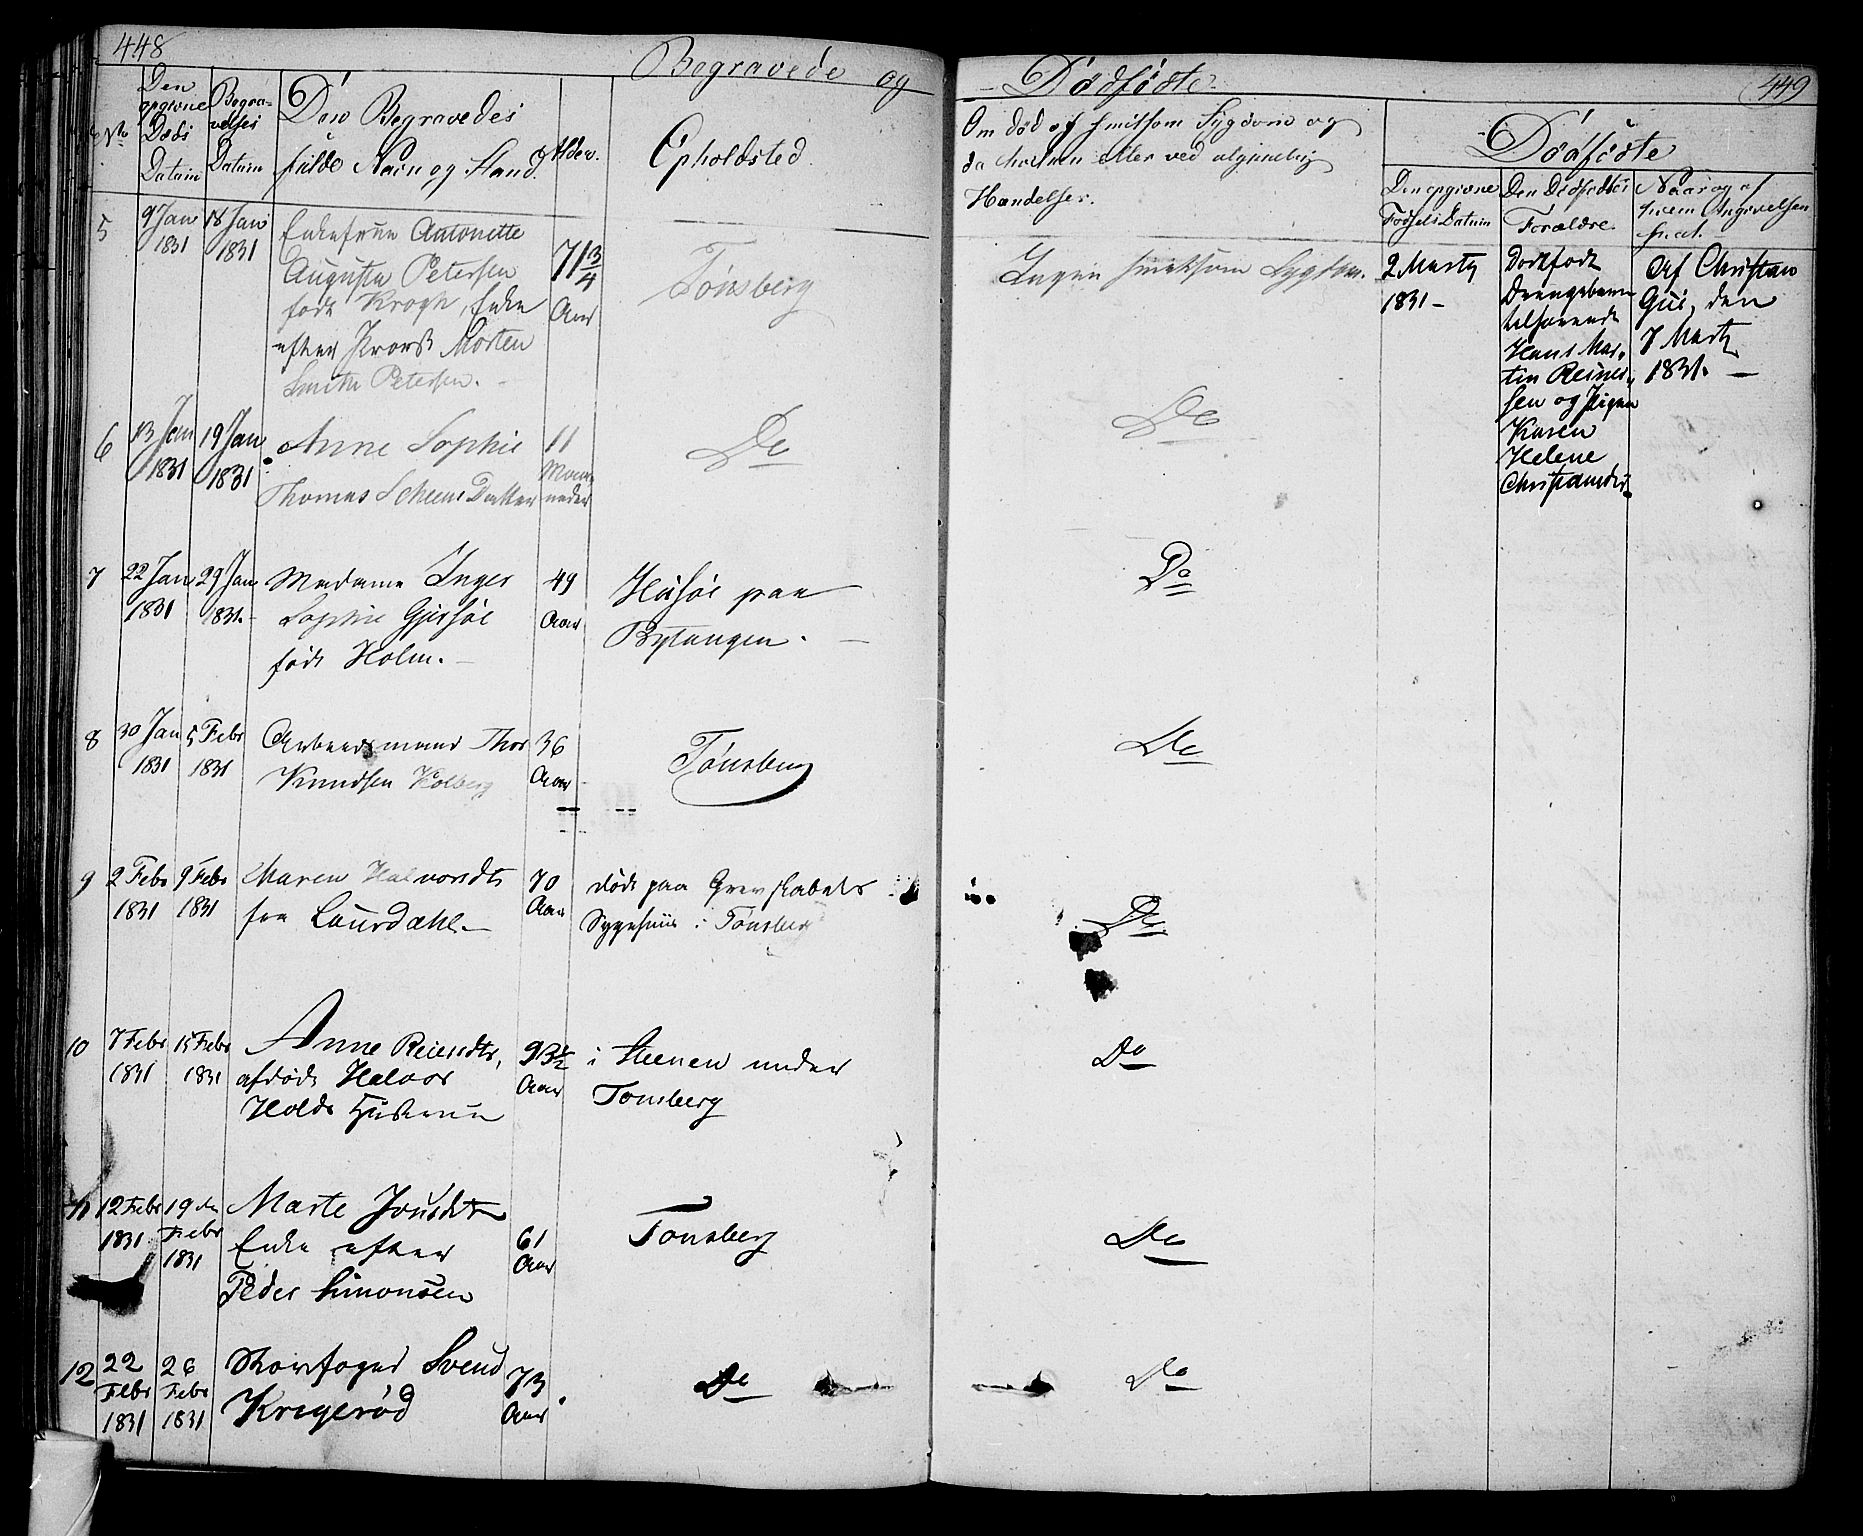 448
Begravede og
No
Den opgivne Døds Datum
Begravelses Datum
Den Begravedes
fulde Navn og Stand.
Alder.
Opholdsted.
5
9 Jan 1831
18 Jan 1831
Enkefrue Antonette
Augusta Petersen
født Krogh, Enke
efter Provst Morten
Smith Petersen.
71 3/4 Aar
Tønsberg
6
13 Jan 1831
19 Jan 1831
Anne Sophie
Thomas Scheens Datter
11 Maaneder
Do
7
22 Jan 1831
29 Jan 1831.
Madame Inger
Sophie Gjersøe
født Holm.
49 Aar
Husøe paa
Bytangen.
8
30 Jan 1831
5 Febr 1831
Arbeidsmand Thor
Knudsen Holberg
36 Aar
Tønsberg
9
2 Febr 1831
9 Febr 1831
Maren Halvorsdtr
fra Laurdahl.
70 Aar
død paa Grevskabets
Sygehuus i Tønsberg
10
7 Febr 1831
15 Febr 1831
Anne Reiersdtr,
afdøde Halvor
Holds Hustrue
93 1/2 Aar
i Steenen under
Tonsberg
11
12 Febr 1831
19 de Febr 1831
Marte
Enke efter
Peder Simonsen
61 Aar
Tonsberg
12
22 Febr 1831
26 Febr 1831
Svend
Krigerød
73 Aar
Do
449
Dødføste.
Om død af smitsom Sygdom og
da hvilken eller ved ualmindelig
Hændelse.
Dødføste
Den opgivne
Fødsels Datum
Den Dødfødtes
Forældre.
Naar og af
hvem Angivelsen
skeet.
Ingen smitsom Sygdom.
2 Marty
1831
Dødfødt
Drengebarn
tilhørende
Hans Mar-
tin Reiner-
sen og Pigen
Karen
Helene
Christiansdtr.
Af Christian
Gui, den
7 Marty
1831.
Do
Do
Do
Do
Do
Do
Do